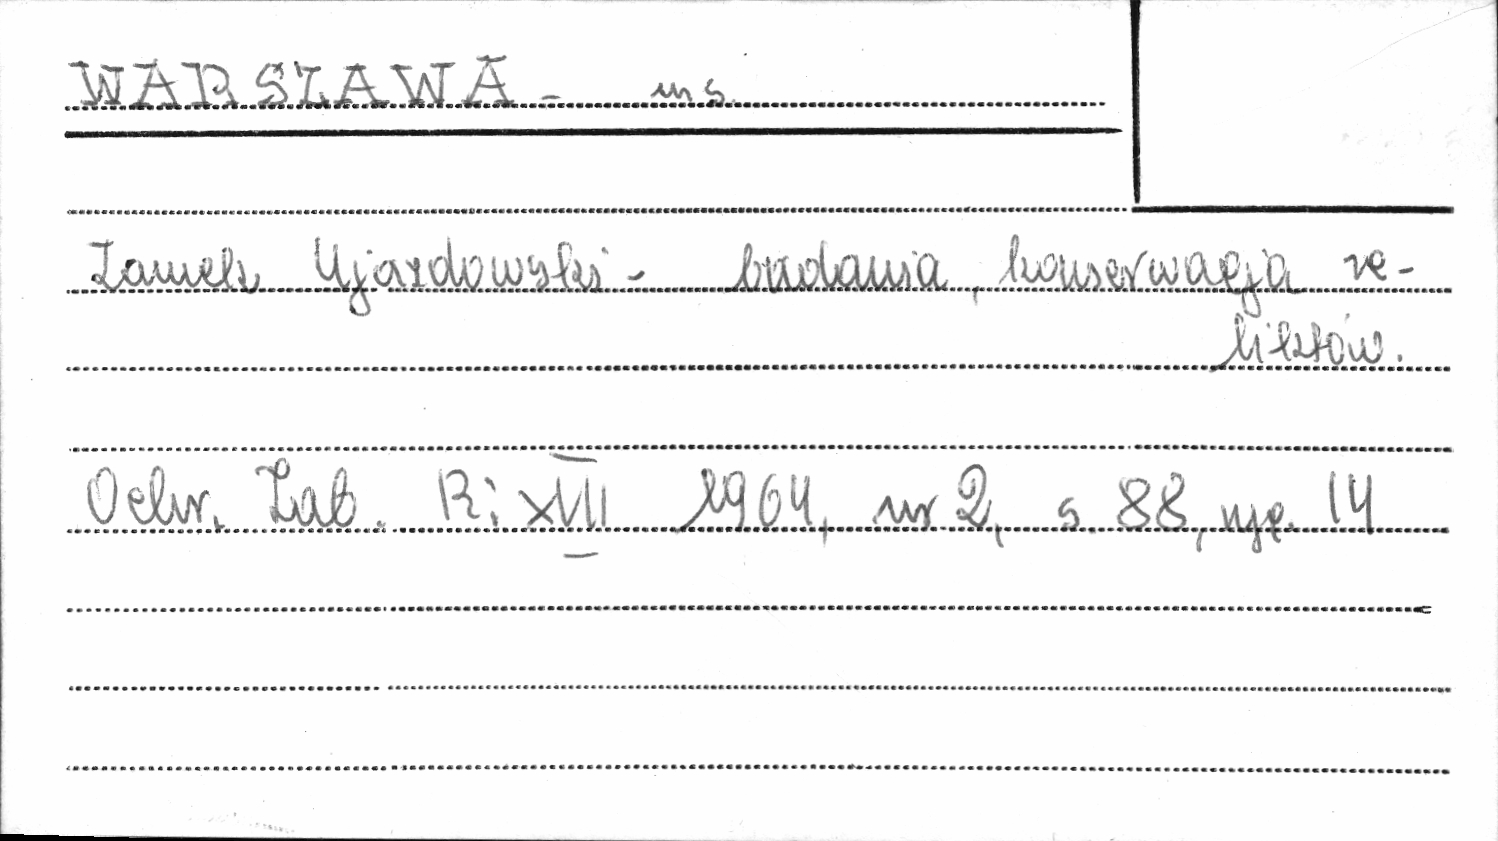 WARSZAWA - m s.
Zamek Ujazdowski - badania, konserwacja re-
liktów.
Ochr. Zab. R: XVII 1964, nr 2, s. 88, ryc. 14